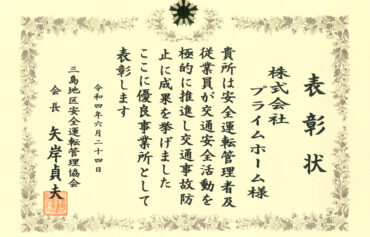 表彰状
株式会社
プライムホーム様
貴所は安全運転管理者及
従業員が交通安全活動を
極的に推進し交通事故防
止に成果を挙げました
ここに優良事業所として
表彰します
令和四年六月二十四日
三島地区安全運転管理協会
会長 矢岸貞夫